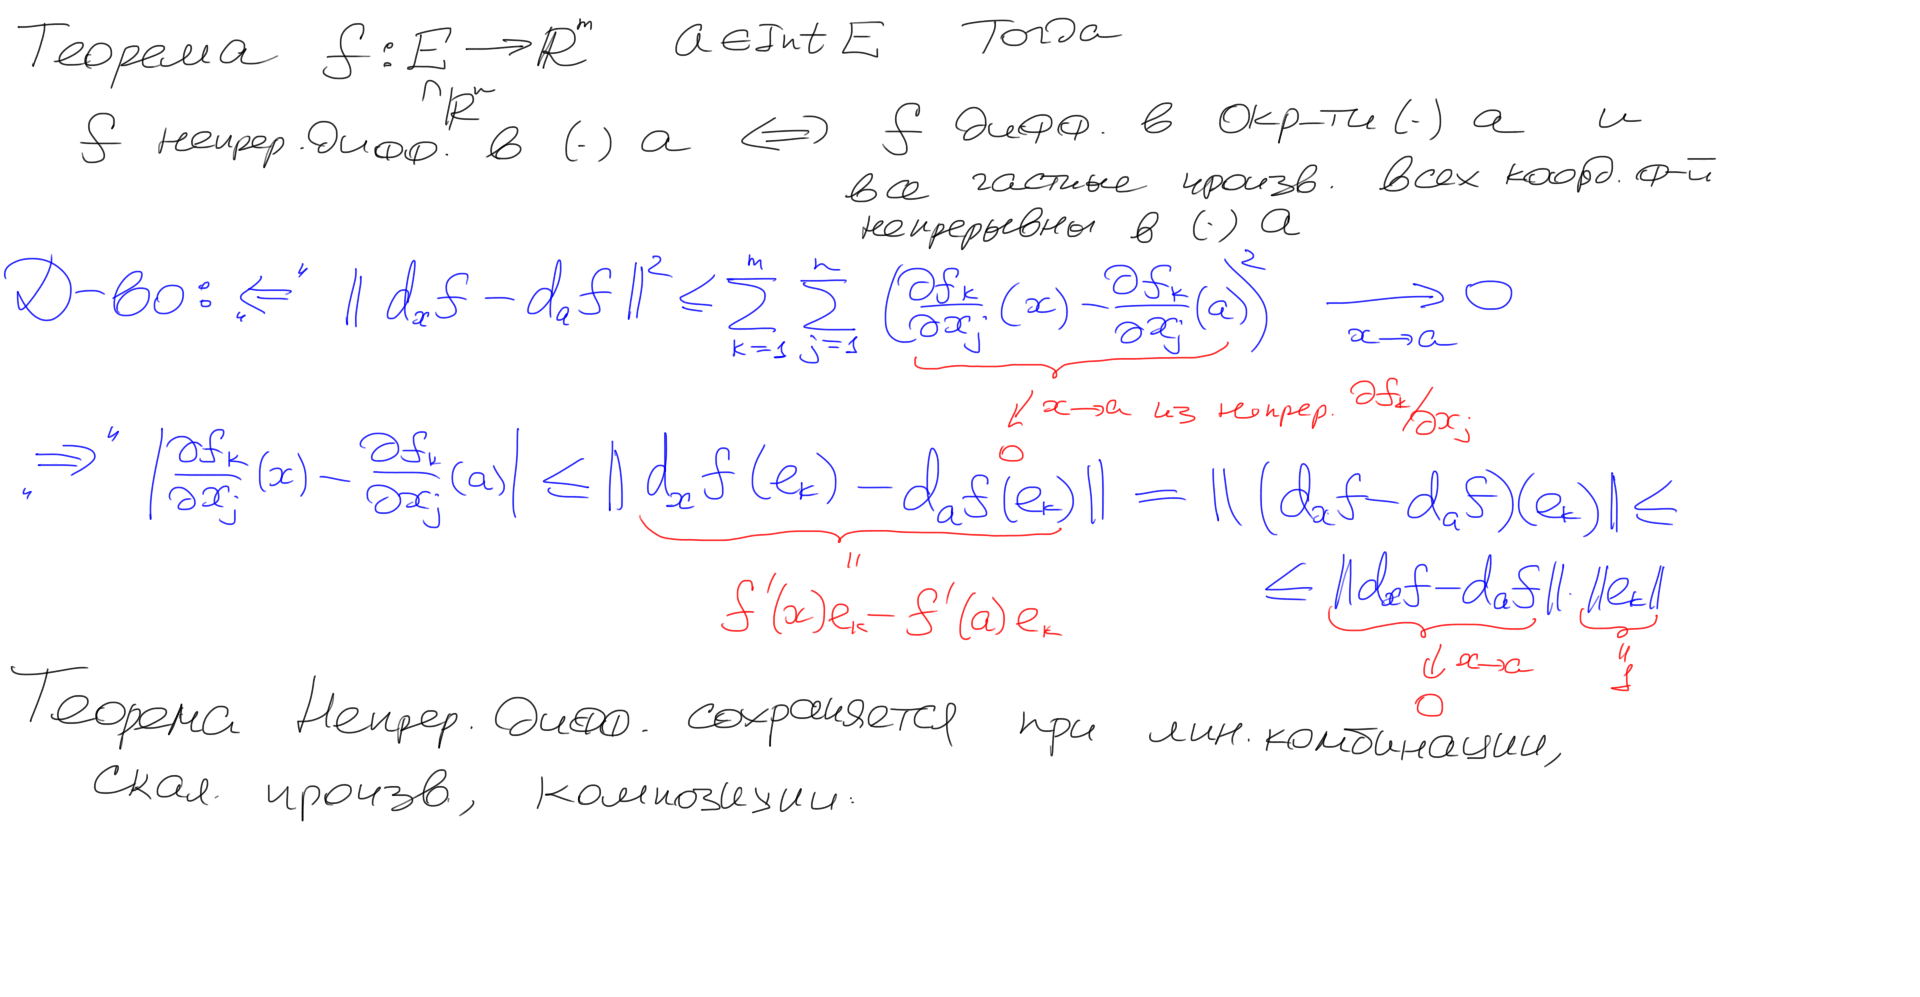 Теорема f : E → ℝᵐ a ∈ Int E Тогда
∩ ℝⁿ
f непрер. дифф. в (·) a ⟺ f дифф. в окр-ти (·) a и
все частные произв. всех коорд. ф-й
непрерывны в (·) a
Д-во: "⇐" ‖dₓf − dₐf‖² ≤ ∑_{k=1}^{m} ∑_{j=1}^{n} (∂fₖ/∂xⱼ (x) − ∂fₖ/∂xⱼ (a))² → 0 x→a
↓ x→a из непрер. ∂fₖ/∂xⱼ
0
"⇒" |∂fₖ/∂xⱼ (x) − ∂fₖ/∂xⱼ (a)| ≤ ‖dₓf(eₖ) − dₐf(eₖ)‖ = ‖(dₓf − dₐf)(eₖ)‖ ≤
≤ ‖dₓf − dₐf‖ · ‖eₖ‖
"
f'(x)eₖ − f'(a)eₖ
↓ x→a " 1
0
Теорема Непрер. дифф. сохраняется при лин. комбинации,
скал. произв, композиции.